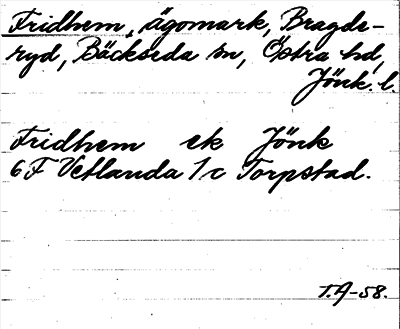 Fridhem, ägomark, Bragde-
ryd, Bäckseda sn, Östra hd,
Jönk. l.
Fridhem ek Jönk
6F Vetlanda 1c Torpstad.
T.A-58.